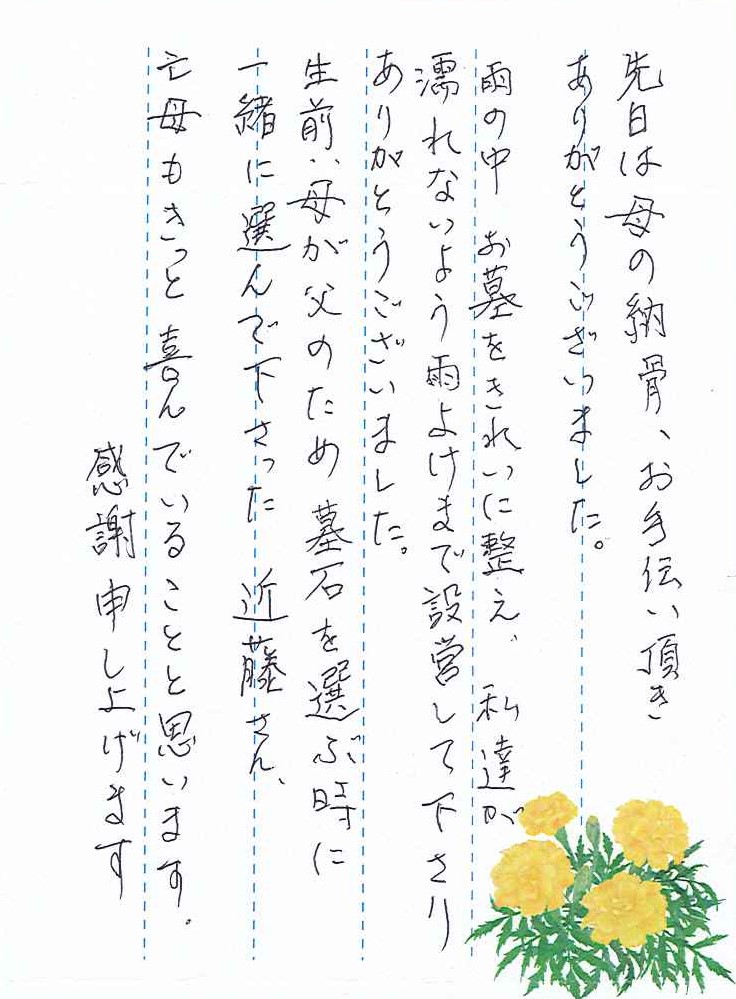 先日は母の納骨、お手伝い頂き
ありがとうございました。
雨の中 お墓をきれいに整え、私達が
濡れないよう雨よけまで設営して下さり
ありがとうございました。
生前、母が父のため墓石を選ぶ時に
一緒に選んで下さった 近藤さん、
亡母もきっと喜んでいることと思います。
感謝申し上げます